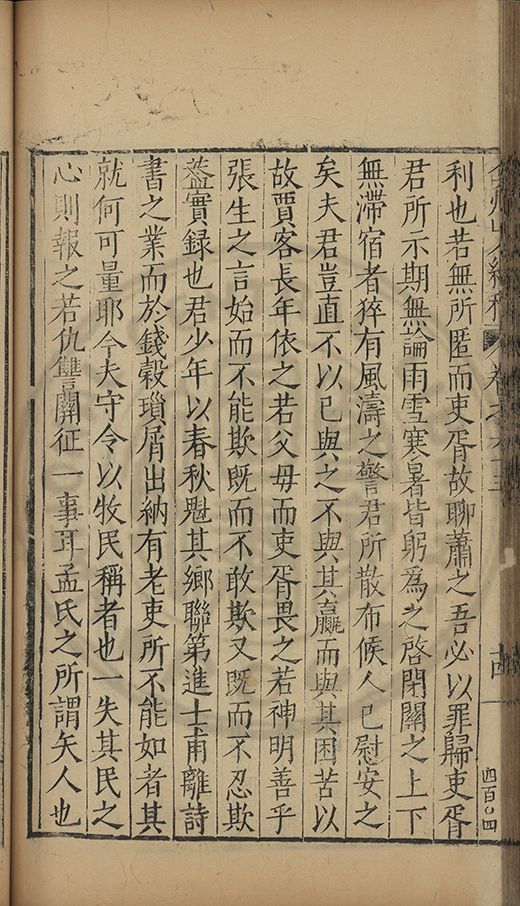 弇州山人續稿 卷之六十三 十四 四百〇四
利也若無所匿而吏胥故聊蕭之吾必以罪歸吏胥
君所示期無論雨雪寒暑皆躬爲之啓閉關之上下
無滯宿者猝有風濤之警君所散布候人已慰安之
矣夫君豈直不以已與之不與其贏而與其困苦以
故賈客長年依之若父毋而吏胥畏之若神明善乎
張生之言始而不能欺既而不敢欺又既而不忍欺
葢實録也君少年以春秋魁其鄉聯第進士甫離詩
書之業而於錢穀瑣屑出納有老吏所不能如者其
就何可量耶今夫守令以牧民稱者也一失其民之
心則報之若仇讐關征一事耳孟氏之所謂矢人也